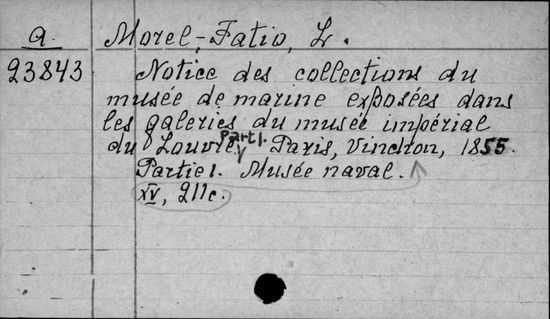 a. Morel-Fatio, L.
23843 Notice des collections du
musée de marine exposées dans
les galeries du musée impérial
du Louvre. Part I. Paris, Vinchon, 1855.
Partie I. Musée naval.
XV, 211 c.